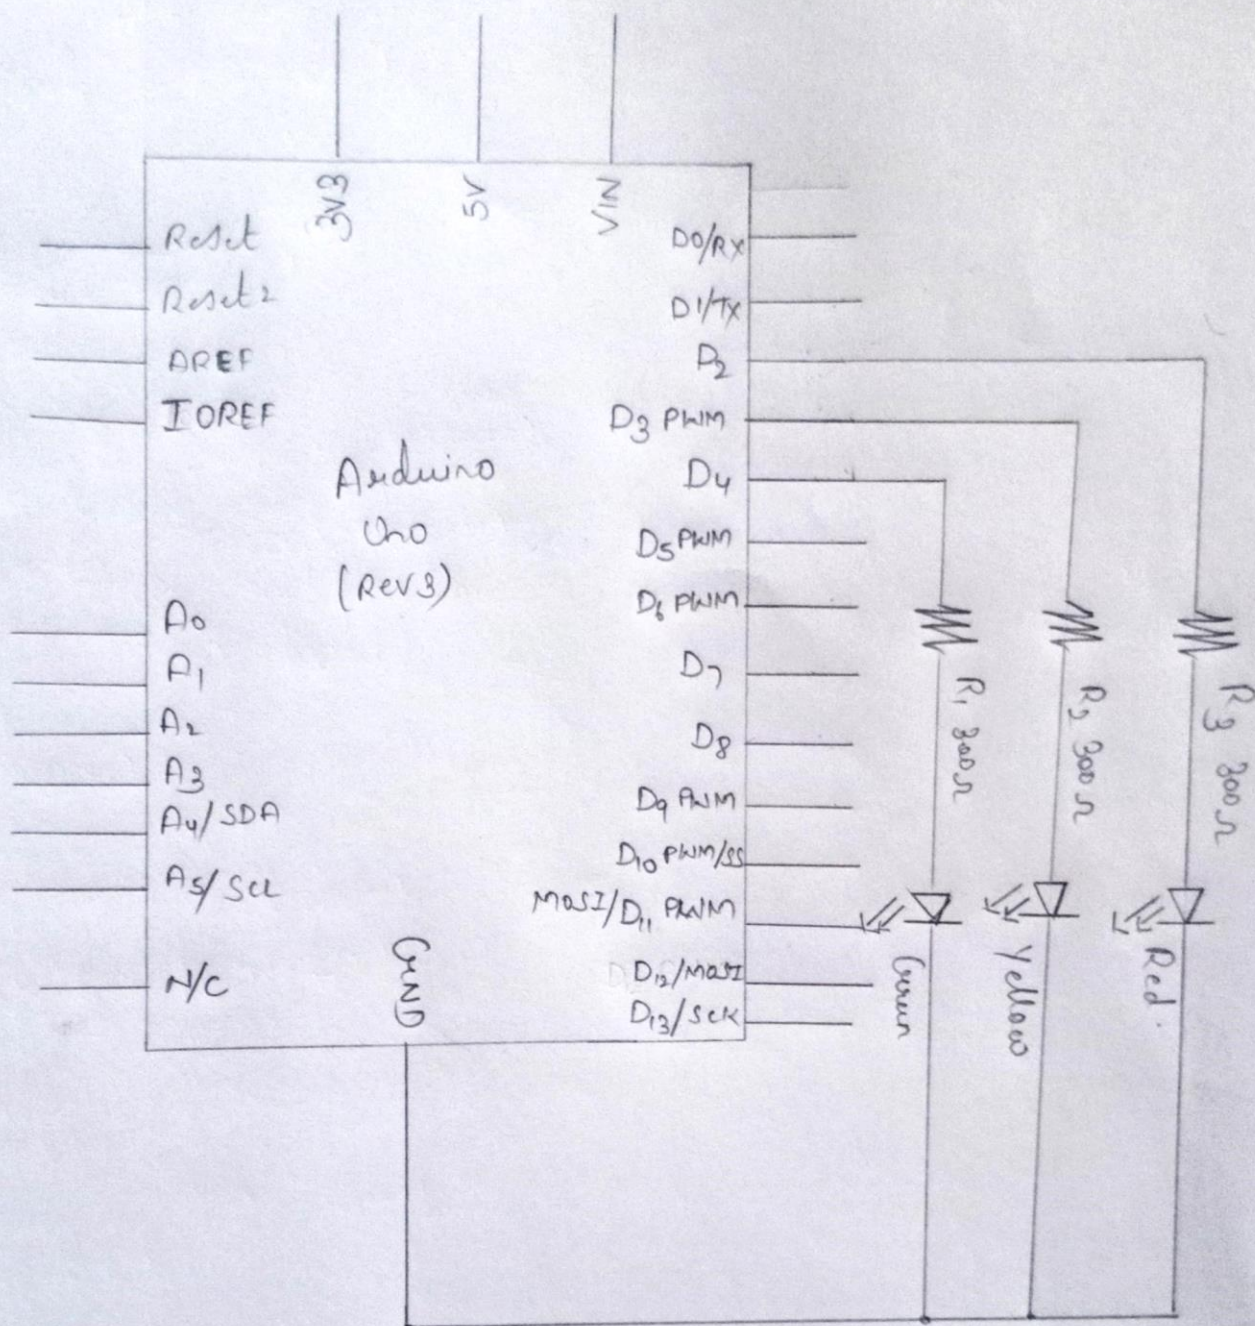 3V3
5V
VIN
Reset
Reset2
AREF
IOREF
Arduino
Uno
(Rev3)
A0
A1
A2
A3
A4/SDA
A5/SCL
N/C
GND
D0/RX
D1/TX
D2
D3 PWM
D4
D5 PWM
D6 PWM
D7
D8
D9 PWM
D10 PWM/SS
MOSI/D11 PWM
D12/MOSI
D13/SCK
R1 300Ω
R2 300Ω
R3 300Ω
Green
Yellow
Red.